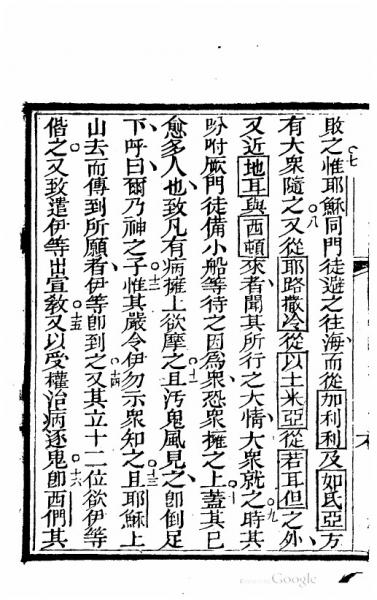 敗之惟耶穌同門徒避之往海而從加利利及如氐亞方
有大衆隨之又從耶路撒冷從以土米亞從若耳但之外
又近地耳與西頓來者聞其所行之大情大衆就之時其
吩咐厥門徒備小船等待之因爲衆恐衆擁之上蓋其已
愈多人也致凡有病擁上欲摩之且汚鬼風見之卽倒足
下呼曰爾乃神之子惟其嚴令伊勿示衆知之且耶穌上
山去而傳到所願者伊等卽到之又其立十二位欲伊等
偕之又致遣伊等出宣敎又以受權治病逐鬼卽西們其
七
八
九
十
十一
十二
十三
十四
十五
十六
Google